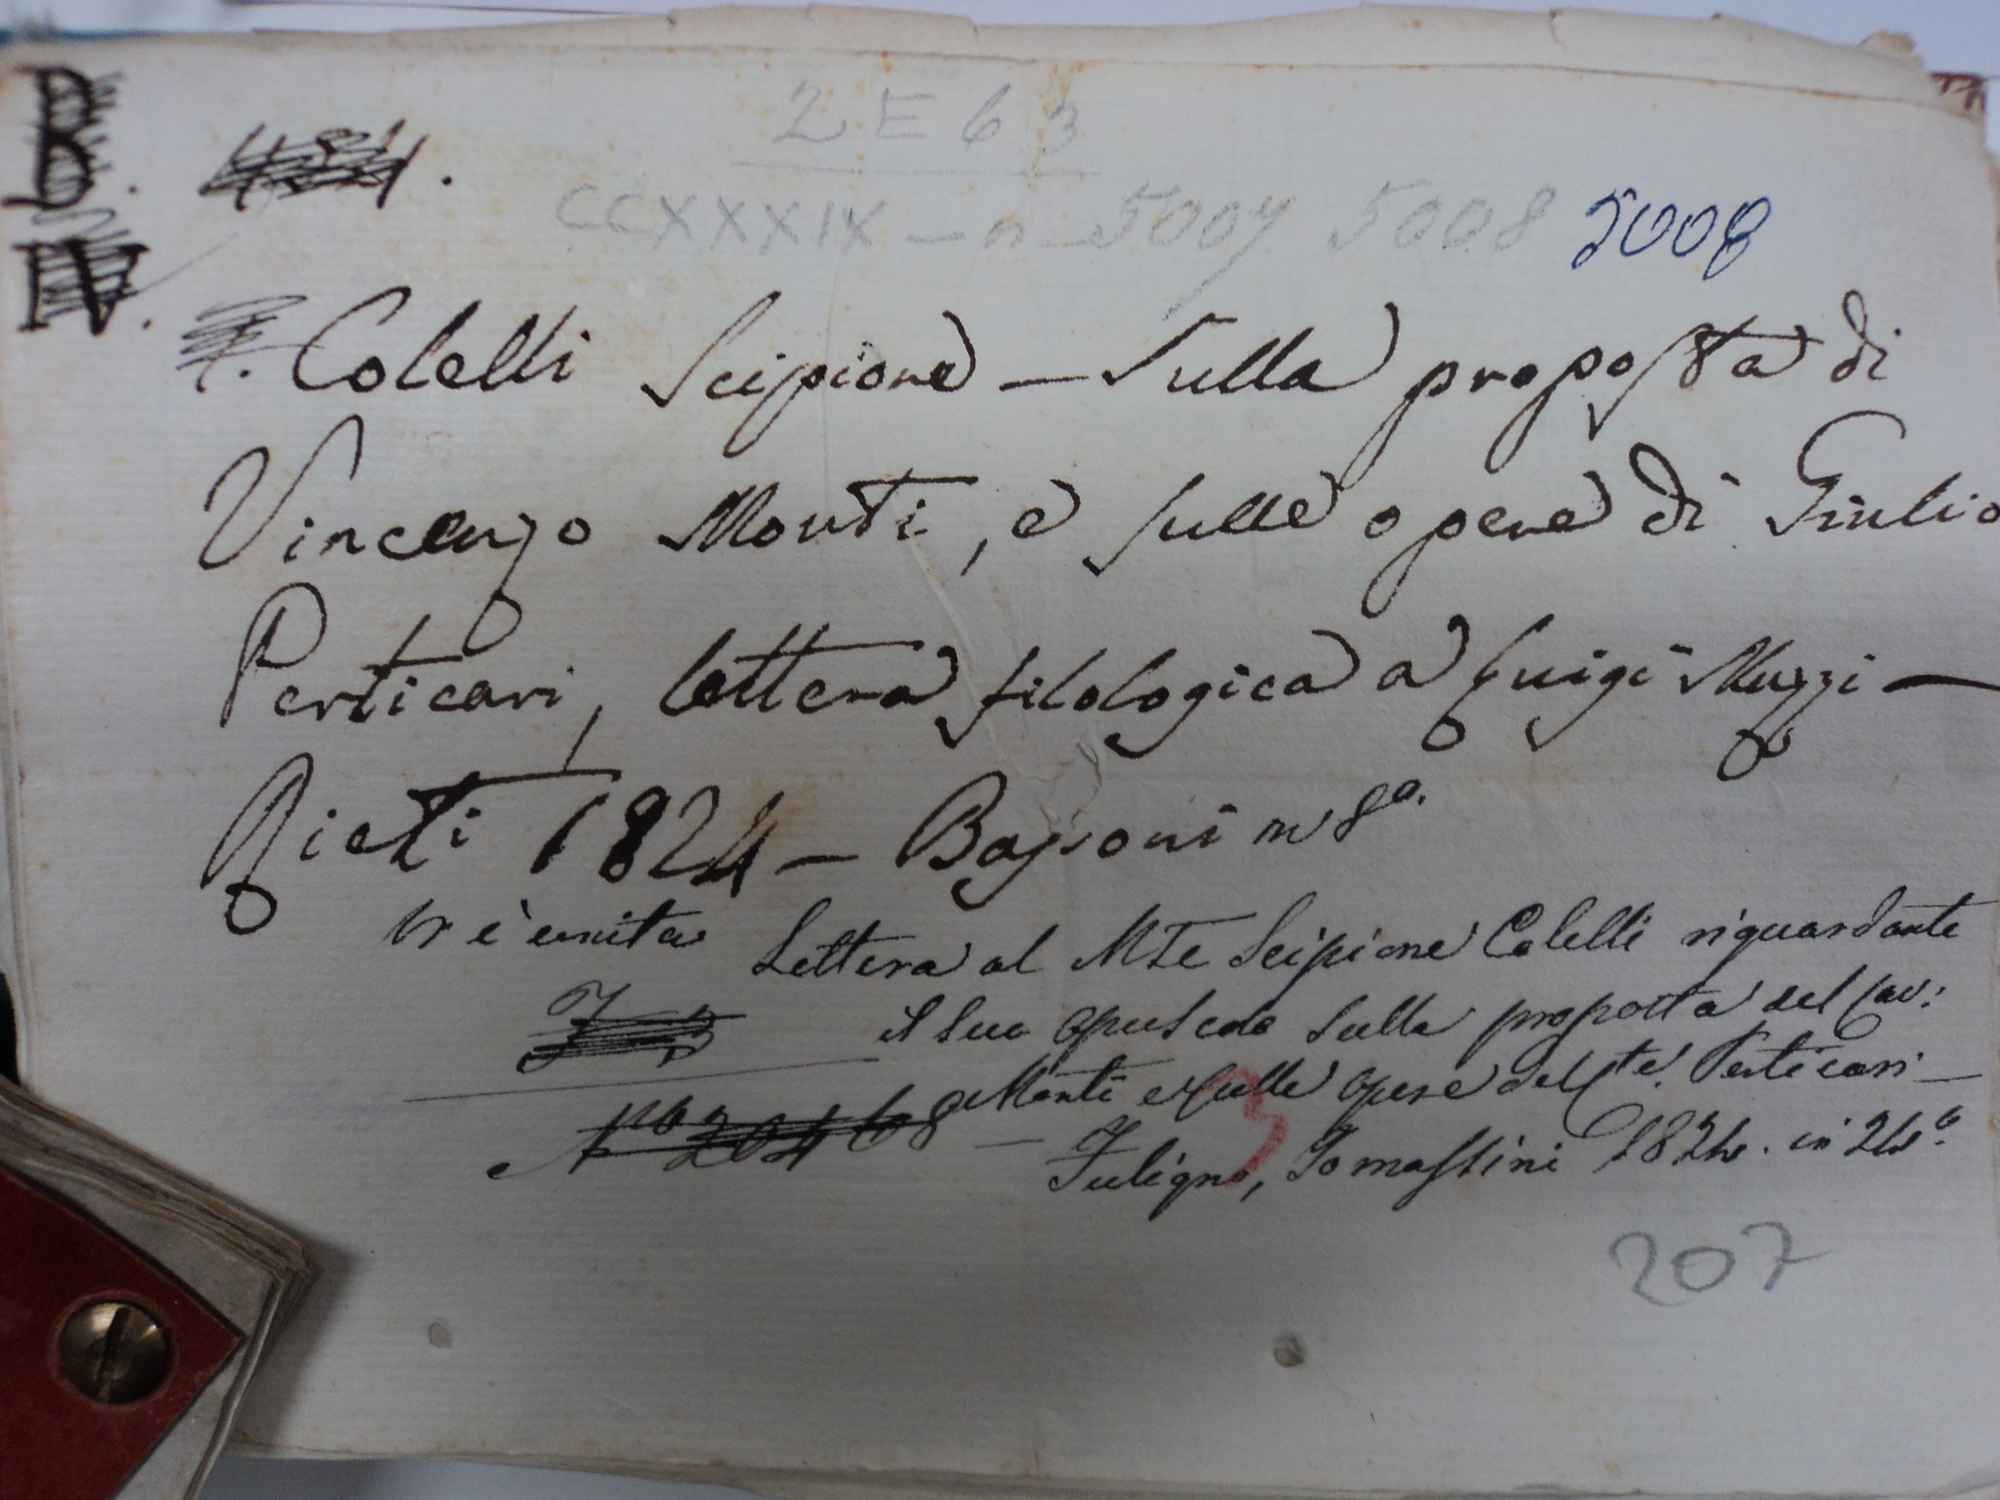 2 E 6 3
B. 484.
CCXXXIX - n - 5007 5008 5008
IV.
Colelli Scipione – Sulla proposta di
Vincenzo Monti, e sulle opere di Giulio
Perticari, lettera filologica a Luigi Muzzi –
Rieti 1824 – Bassoni in 8º.
Vi è unita Lettera al Mse Scipione Colelli riguardante
il suo opuscolo sulla proposta del Cav:
Monti e sulle opere del Cte. Perticari –
Fuligno, Tomassini 1824. in 24º.
207